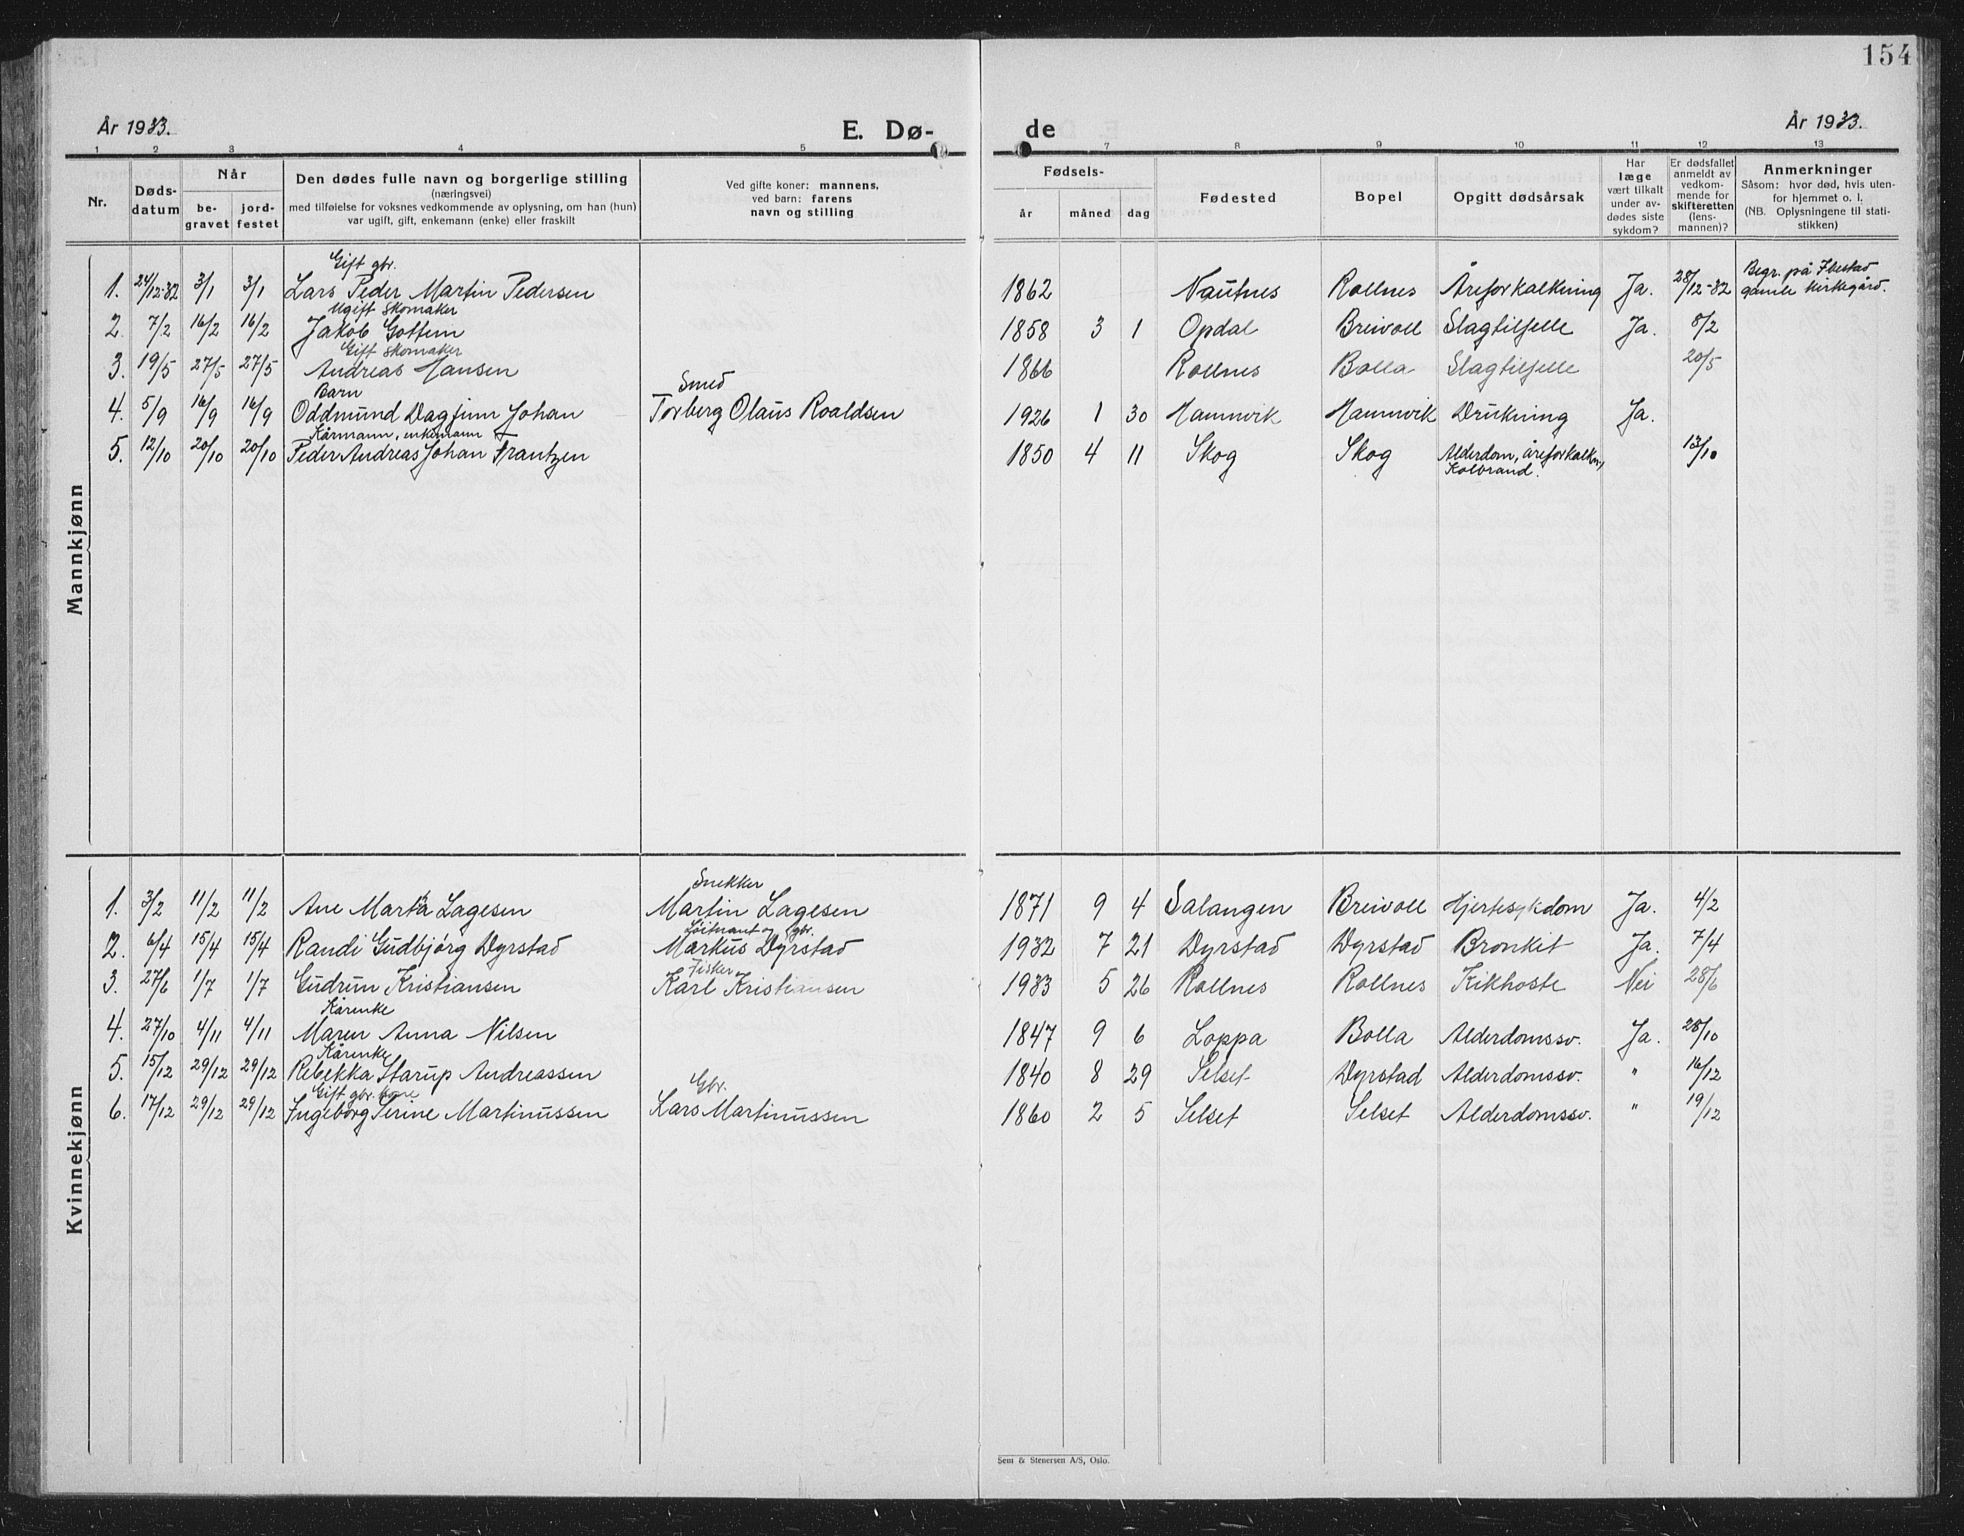 154
År 1933.
E. Dø-
de
År 1933.
1 2 3 4 5 7 8 9 10 11 12 13
Nr.
Døds-
datum
Når
be-
gravet
jord-
festet
Den dødes fulle navn og borgerlige stilling
(næringsvei)
med tilføielse for voksnes vedkommende av oplysning, om han (hun)
var ugift, gift, enkemann (enke) eller fraskilt
Ved gifte koner: mannens,
ved barn: farens
navn og stilling
Fødsels-
år måned dag
Fødested
Bopel
Opgitt dødsårsak
Har
læge
vært tilkalt
under av-
dødes siste
sykdom?
Er dødsfallet
anmeldt av
vedkom-
mende for
skifteretten
(lens-
mannen)?
Anmerkninger
Såsom: hvor død, hvis uten-
for hjemmet o. l.
(NB. Oplysningene til stati-
stikken)
Mannkjønn
Gift gbr.
1. 24/12-32 3/1 3/1 Lars Peder Martin Pedersen 1862 Nautnes Rollnes Åreforkalkning Ja. 28/12-32 Begr. på Ibestad
gamle kirkegård.
Ugift skomaker
2. 7/2 16/2 16/2 Jakob Gottem 1858 3 1 Opdal Breivoll Slagtilfelle Ja. 8/2
Gift skomaker
3. 19/5 27/5 27/5 Andreas Hansen 1866 Rollnes Bolla Slagtilfelle 20/5
Barn Smed
4. 5/9 16/9 16/9 Oddmund Dagfinn Johan Torberg Olaus Roaldsen 1926 1 30 Hamnvik Hamnvik Drukning Ja.
Kårmann, enkemann
5. 12/10 20/10 20/10 Peder Andreas Johan Frantzen 1850 4 11 Skog Skog Alderdom, åreforkalkn,
Kolbrand. 13/10
Kvinnekjønn
Snekker
1. 3/2 11/2 11/2 Ane Marta Lagesen Martin Lagesen 1871 9 4 Salangen Breivoll Hjertesykdom Ja. 4/2
Løitnant og gbr.
2. 6/4 15/4 15/4 Randi Gudbjørg Dyrstad Markus Dyrstad 1932 7 21 Dyrstad Dyrstad Bronkit Ja. 7/4
Fisker
3. 27/6 1/7 1/7 Gudrun Kristiansen Karl Kristiansen 1933 5 26 Rollnes Rollnes Kikhoste Nei 28/6
Kårenke
4. 27/10 4/11 4/11 Maren Anna Nilsen 1847 9 6 Loppa Bolla Alderdomssv. Ja. 28/10
Kårenke
5. 15/12 29/12 29/12 Rebekka Starup Andreassen 1840 8 29 Selset Dyrstad Alderdomssv. " 16/12
Gift gbr. kone Gbr.
6. 17/12 29/12 29/12 Ingeborg Serine Martinussen Lars Martinussen 1860 2 5 Selset Selset Alderdomssv. " 19/12
Sem & Stenersen A/S, Oslo.